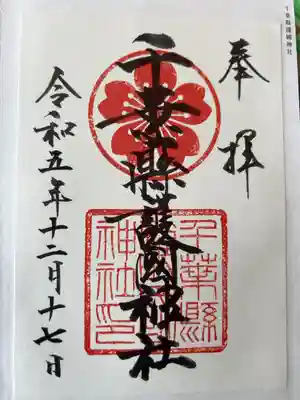 千葉縣護國神社
奉拝
千葉縣護國神社
千葉縣
神社印
令和五年十二月十七日